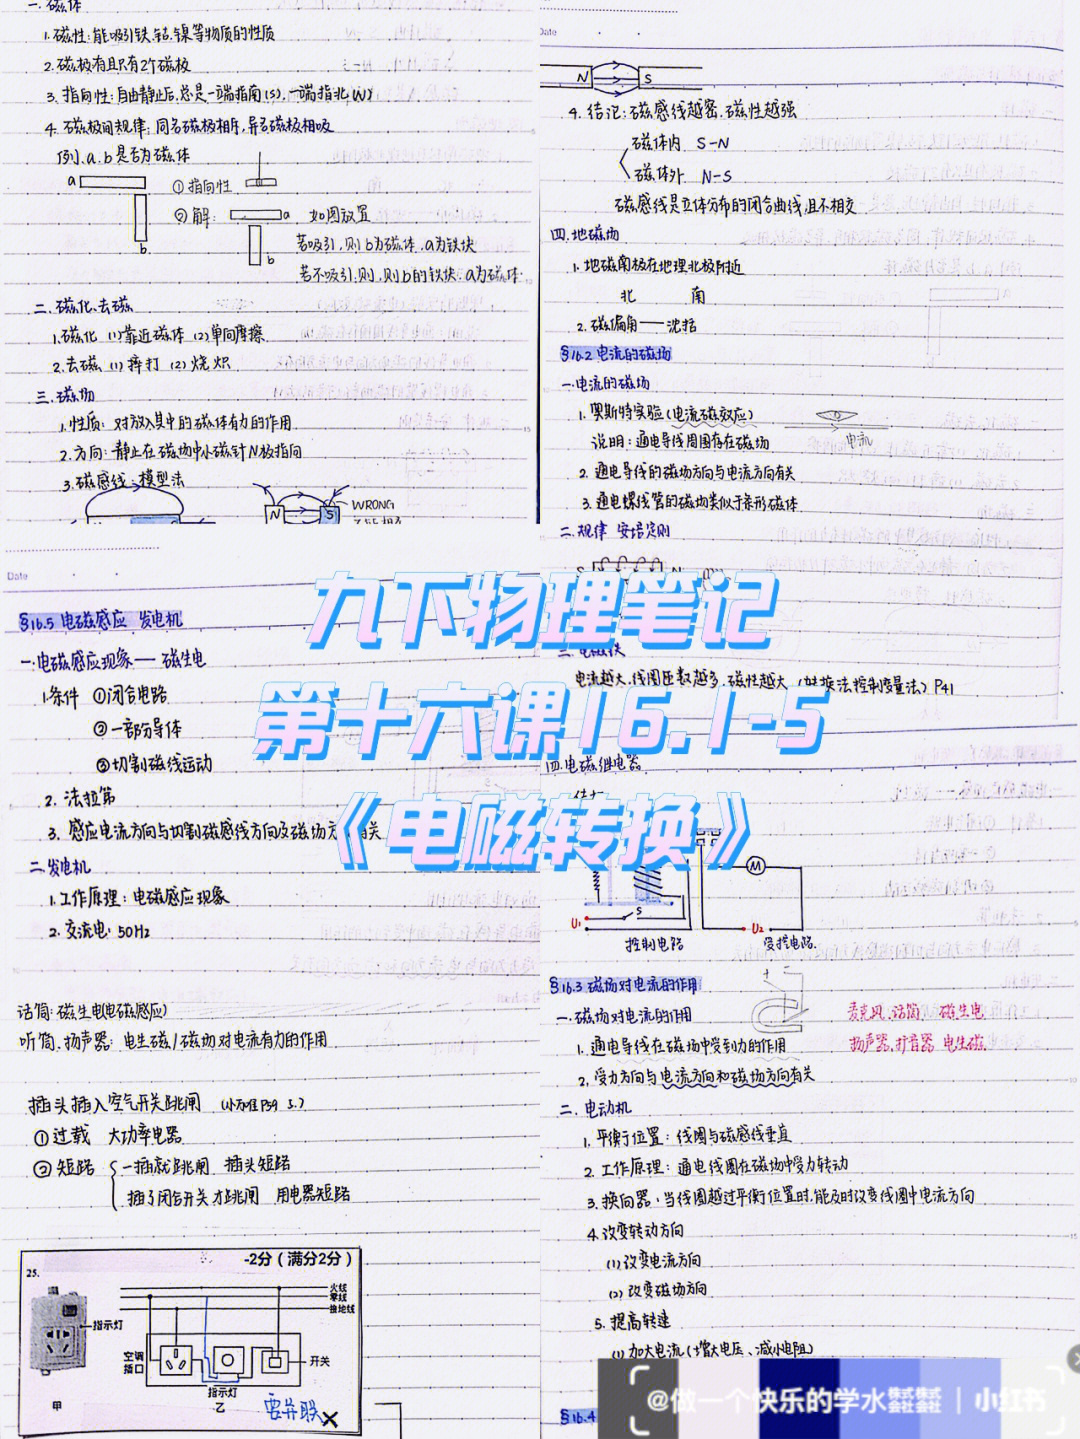 一. 磁体
1. 磁性: 能吸引铁.钴.镍等物质的性质
2. 磁极有且只有2个磁极
3. 指向性: 自由静止后,总是一端指南(S),一端指北(N)
4. 磁极间规律: 同名磁极相斥,异名磁极相吸
例. a.b是否为磁体
a
b
① 指向性
② 解:
a
b
如图放置
若吸引,则b为磁体,a为铁块
若不吸引,则,则b的铁块,a为磁体
二. 磁化、去磁
1. 磁化 (1) 靠近磁体 (2) 单向摩擦
2. 去磁 (1) 摔打 (2) 烧炽
三. 磁场
1. 性质: 对放入其中的磁体有力的作用
2. 方向: 静止在磁场中小磁针N极指向
3. 磁感线: 模型法
N S WRONG
Date
N S
4. 结论: 磁感线越密,磁性越强
磁体内 S-N
磁体外 N-S
磁感线是立体分布的闭合曲线,且不相交
四. 地磁场
1. 地磁南极在地理北极附近
北 南
2. 磁偏角——沈括
§16.2 电流的磁场
一. 电流的磁场
1. 奥斯特实验(电流磁效应)
电流
说明: 通电导线周围存在磁场
2. 通电导线的磁场方向与电流方向有关
3. 通电螺线管的磁场类似于条形磁体
二. 规律 安培定则
三. 电磁铁
电流越大,线圈匝数越多,磁性越大 (转换法控制变量法) P41
四. 电磁继电器
M
S
U₁
U₂
控制电路 受控电路
§16.3 磁场对电流的作用
一. 磁场对电流的作用
1. 通电导线在磁场中受到力的作用
2. 受力方向与电流方向和磁场方向有关
麦克风、话筒 磁生电
扬声器,扩音器 电生磁
二. 电动机
1. 平衡位置: 线圈与磁感线垂直
2. 工作原理: 通电线圈在磁场中受力转动
3. 换向器: 当线圈越过平衡位置时,能及时改变线圈中电流方向
4. 改变转动方向
(1) 改变电流方向
(2) 改变磁场方向
5. 提高转速
(1) 加大电流 (增大电压、减小电阻)
§16.4
Date
§16.5 电磁感应 发电机
一. 电磁感应现象——磁生电
1. 条件 ①闭合电路
②一部分导体
③切割磁线运动
2. 法拉第
3. 感应电流方向与切割磁感线方向及磁场方向有关
二. 发电机
1. 工作原理: 电磁感应现象
2. 交流电: 50Hz
话筒: 磁生电(电磁感应)
听筒.扬声器: 电生磁/磁场对电流有力的作用
插头插入空气开关跳闸
① 过载 大功率电器
② 短路 一插就跳闸 插头短路
插了闭合开关才跳闸 用电器短路
-2分(满分2分)
25.
火线
零线
接地线
指示灯
空调
插口
开关
指示灯
甲
乙
九下物理笔记
第十六课16.1-5
《电磁转换》
@做一个快乐的学水株式株式会社会社 | 小红书